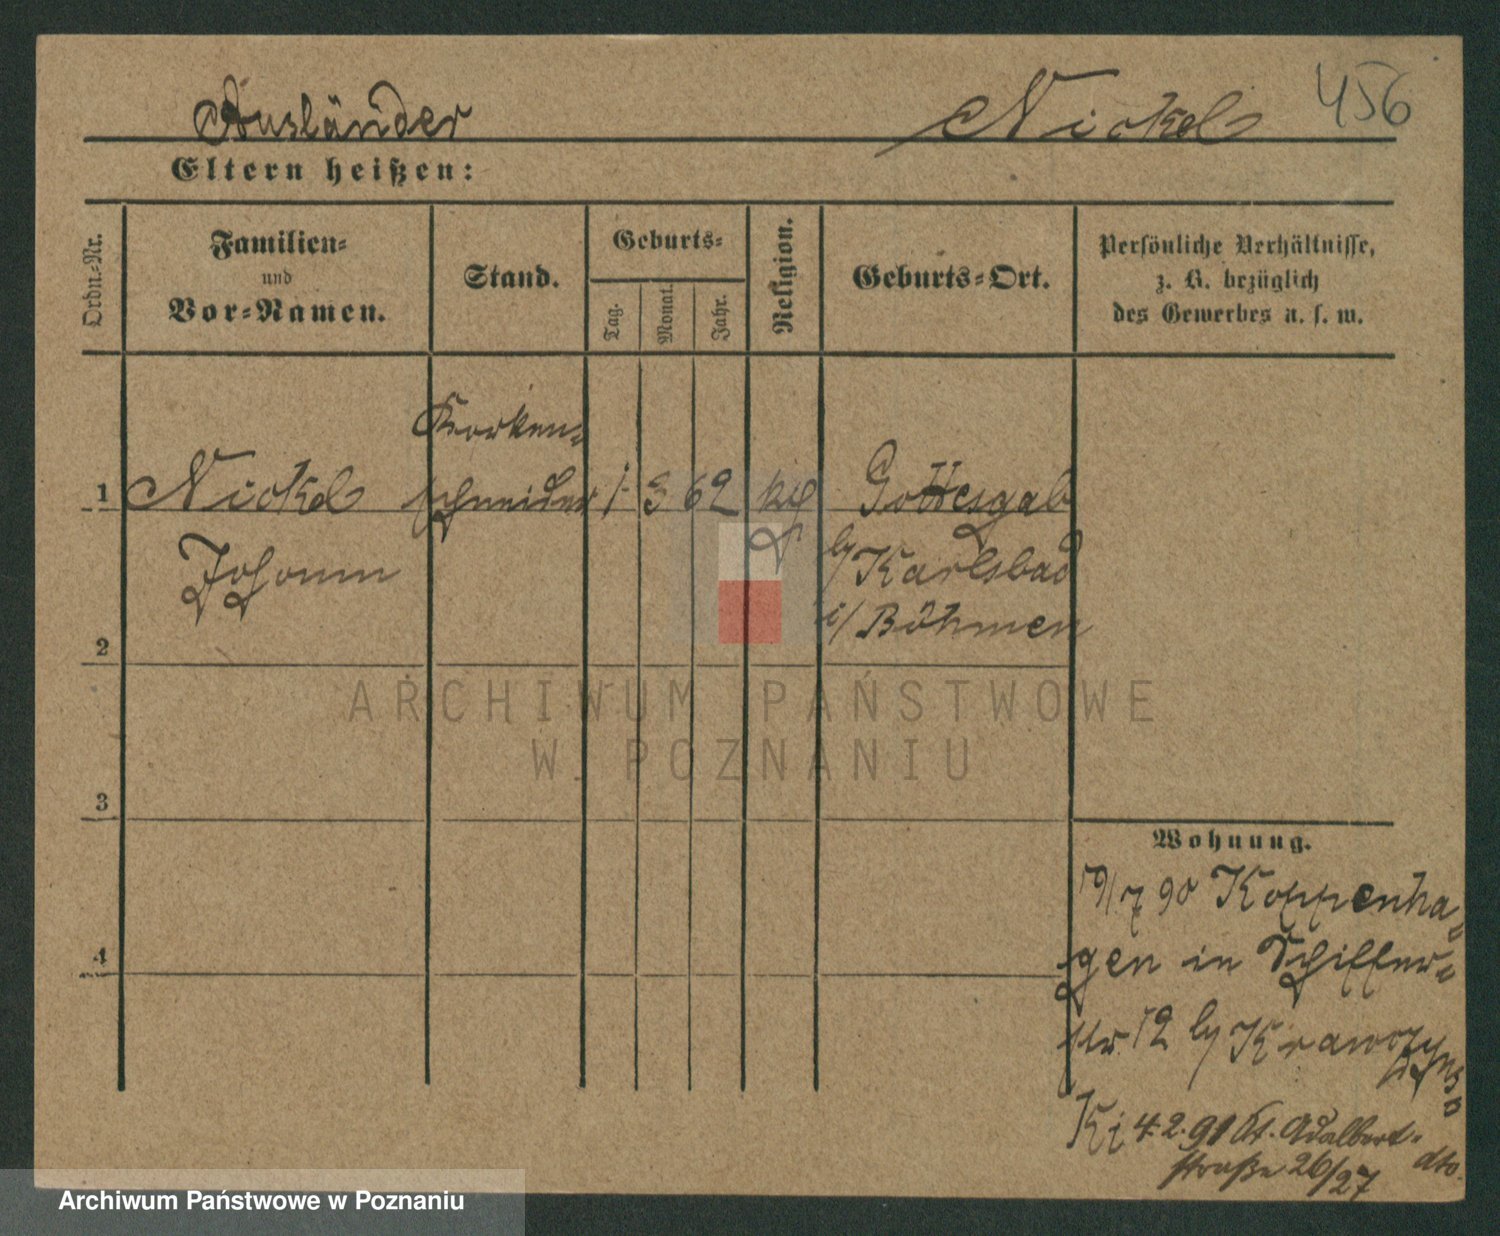 Ausländer
Nickel
456
Eltern heißen:
Ordn.-Nr.
Familien-
und
Vor-Namen.
Stand.
Geburts-
Tag.
Monat.
Jahr.
Religion.
Geburts-Ort.
Persönliche Verhältnisse,
z. B. bezüglich
des Gewerbes u. s. w.
Korken-
1 Nickel schneider 1. 3 62 Gottesgab
Johann
b/ Karlsbad
i/ Böhmen
2
3
4
Wohnung.
19/7 90 Koppenha-
gen in Schiffer-
str. 12 b/ Krawczynski
4.2.91 St. Adalbert-
straße 26/27
dto.
ARCHIWUM PAŃSTWOWE
W POZNANIU
Archiwum Państwowe w Poznaniu